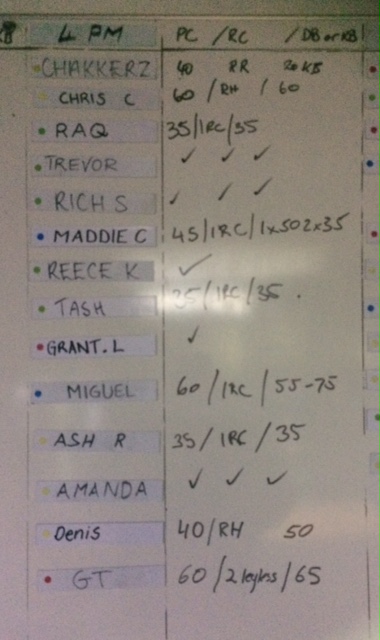 4 PM PC /RC /DB or KB
CHAKKERZ 40 RR 20KB
CHRIS C 60 / RH / 60
RAQ 35/1RC/35
TREVOR ✓ ✓ ✓
RICH S ✓ ✓ ✓
MADDIE C 45/1RC/1x50 2x35
REECE K ✓
TASH 35/1RC/35.
GRANT.L ✓
MIGUEL 60/1RC/55-75
ASH R 35/1RC/35
AMANDA ✓ ✓ ✓
Denis 40/RH 50
GT 60/2 legless/65